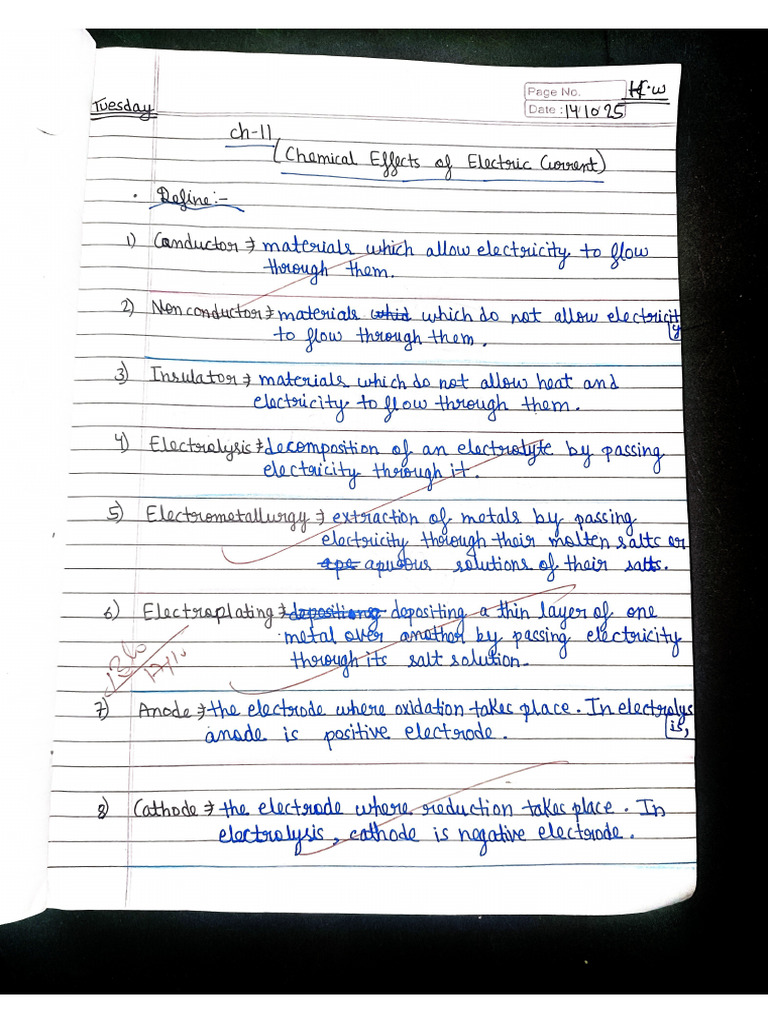 Tuesday
Page No. H.w
Date : 14/10/25
ch-11
(Chemical Effects of Electric Current)
• Define:-
1) Conductor → materials which allow electricity to flow
through them.
2) Non conductor → materials whid which do not allow electricity
to flow through them.
3) Insulator → materials which do not allow heat and
electricity to flow through them.
4) Electrolysis → decomposition of an electrolyte by passing
electricity through it.
5) Electrometallurgy → extraction of metals by passing
electricity through their molten salts or
ape apuous solutions of their salts.
6) Electroplating → depositiong depositing a thin layer of one
metal over another by passing electricity
through its salt solution.
7) Anode → the electrode where oxidation takes place. In electrolysis,
anode is positive electrode.
8) Cathode → the electrode where reduction takes place. In
electrolysis, cathode is negative electrode.